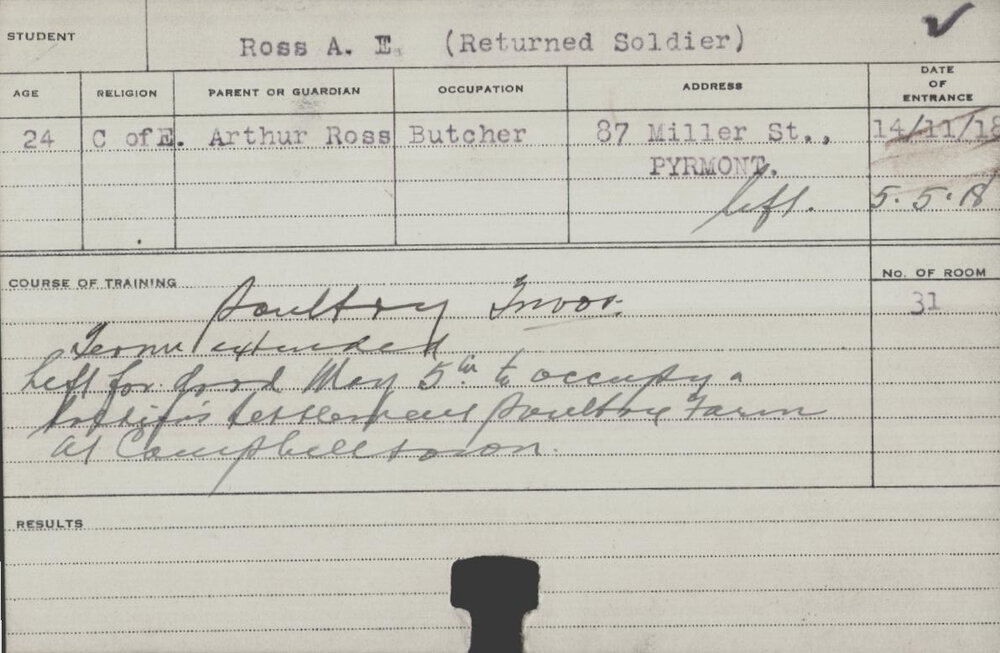 STUDENT
Ross A. E. (Returned Soldier)
AGE
RELIGION
PARENT OR GUARDIAN
OCCUPATION
ADDRESS
DATE
OF
ENTRANCE
24 C of E. Arthur Ross Butcher 87 Miller St., 14/11/18
PYRMONT.
left. 5.5.18
COURSE OF TRAINING
No. OF ROOM
31
Poultry
Term extended
Left for good May 5th to occupy a
Settlement Poultry Farm
at Campbelltown.
RESULTS